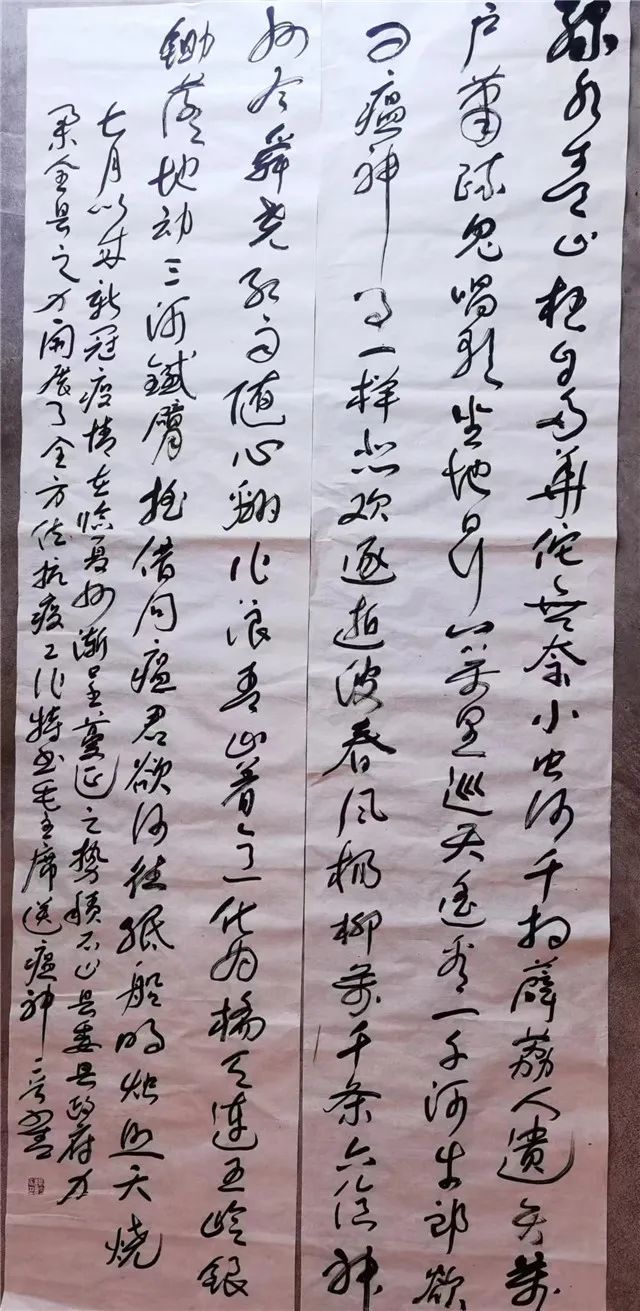 绿水青山枉自多華佗無奈小虫何千村薜荔人遗矢萬
户萧疏鬼唱歌坐地日行八萬里巡天遥看一千河牛郎欲
问瘟神事一样悲欢逐逝波春风杨柳萬千条六亿神
州尽舜尧红雨随心翻作浪青山着意化为桥天连五岭银
锄落地动三河鐵臂摇借问瘟君欲何往纸船明烛照天烧
七月以来新冠疫情在临夏州渐呈蔓延之势积石山县委县政府
全县之力开展了全方位抗疫工作特书毛主席送瘟神二首